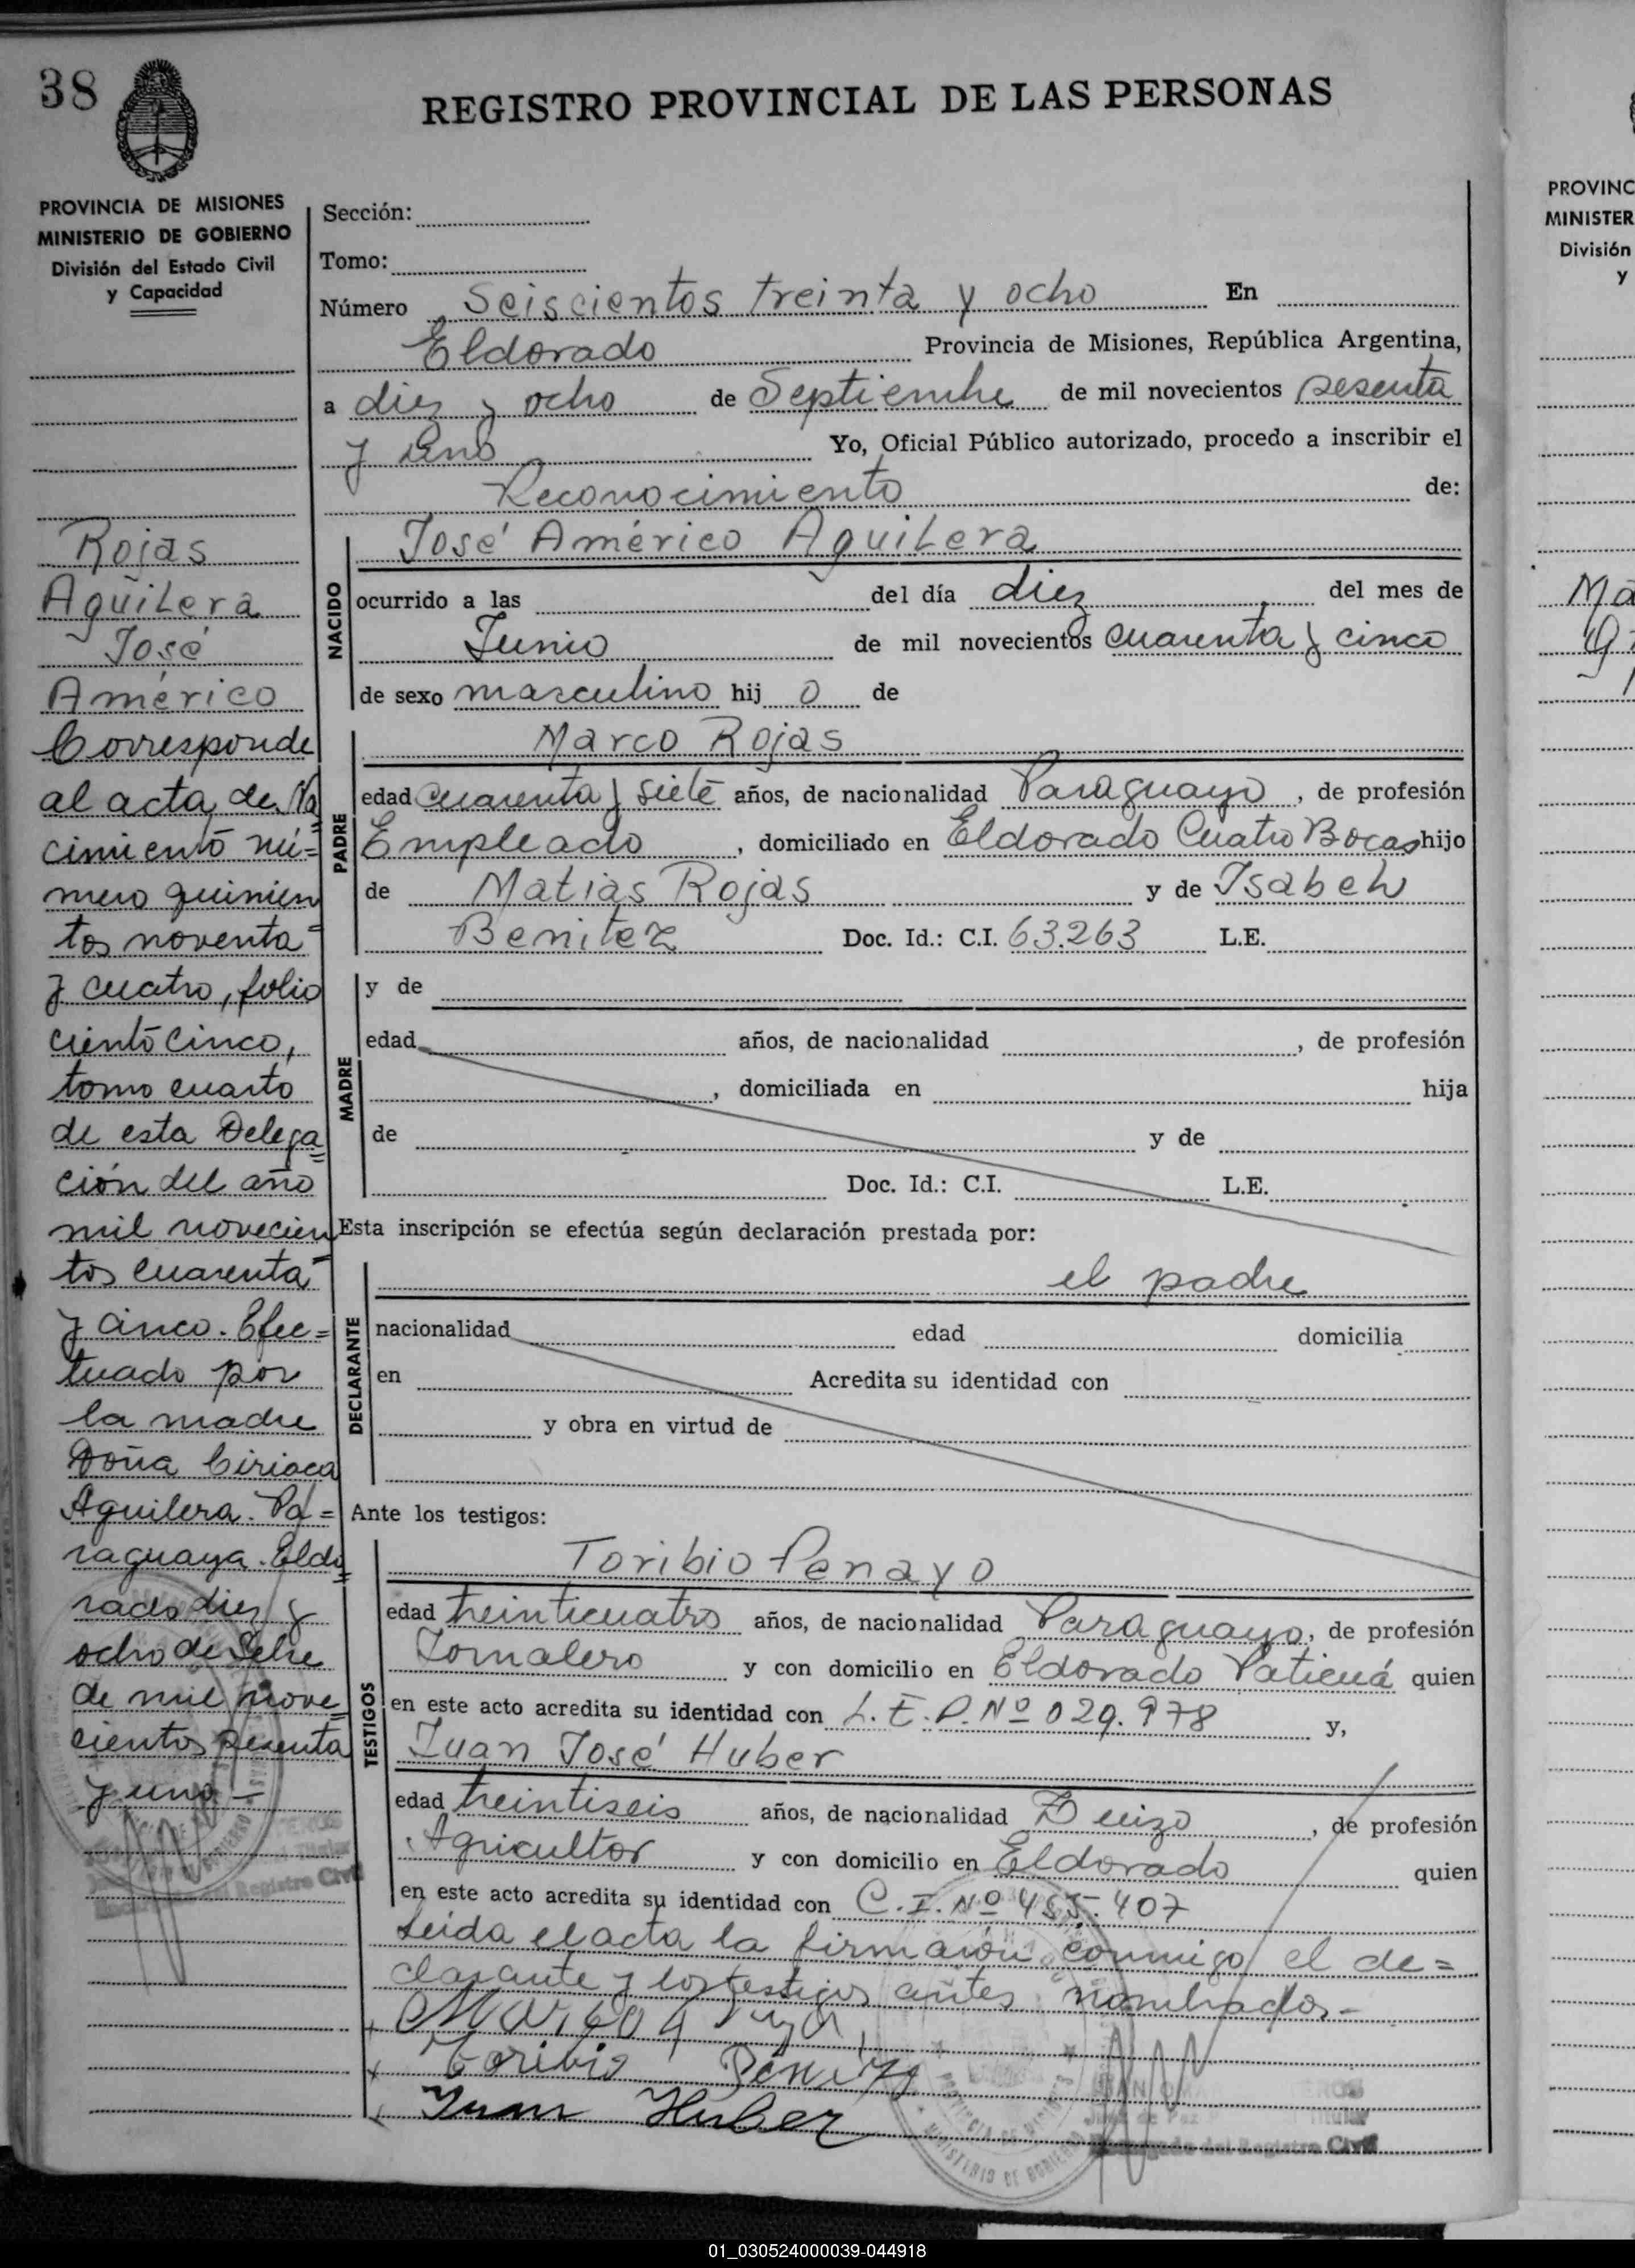 38
REGISTRO PROVINCIAL DE LAS PERSONAS
PROVINCIA DE MISIONES
MINISTERIO DE GOBIERNO
División del Estado Civil
y Capacidad
Rojas
Aguilera
José
Américo
Corresponde
al acta de Na
cimiento nú=
mero quinien
tos noventa
y cuatro, folio
ciento cinco,
tomo cuarto
de esta Delega
ción del año
mil novecien
tos cuarenta
y cinco. Efec=
tuado por
la madre
Doña Ciriaca
Aguilera. Pa=
raguaya. Eldo
rado diez y
ocho de Sebre
de mil nove
cientos sesenta
y uno
Sección:
Tomo:
Número Seiscientos treinta y ocho En
Eldorado Provincia de Misiones, República Argentina,
a diez y ocho de Septiembre de mil novecientos sesenta
y uno Yo, Oficial Público autorizado, procedo a inscribir el
Reconocimiento de:
NACIDO
José Américo Aguilera
ocurrido a las del día diez del mes de
Junio de mil novecientos cuarenta y cinco
de sexo masculino hij o de
PADRE
Marco Rojas
edad cuarenta y siete años, de nacionalidad Paraguayo, de profesión
Empleado, domiciliado en Eldorado Cuatro Bocas hijo
de Matias Rojas y de Isabel
Benitez Doc. Id.: C.I. 63.263 L.E.
MADRE
y de
edad años, de nacionalidad , de profesión
, domiciliada en hija
de y de
Doc. Id.: C.I. L.E.
Esta inscripción se efectúa según declaración prestada por:
DECLARANTE
el padre
nacionalidad edad domicilia
en Acredita su identidad con
y obra en virtud de
Ante los testigos:
TESTIGOS
Toribio Penayo
edad treinticuatro años, de nacionalidad Paraguayo, de profesión
Jornalero y con domicilio en Eldorado Paticuá quien
en este acto acredita su identidad con L.E.P. Nº 029.978 y,
Juan José Huber
edad treintiseis años, de nacionalidad Suizo, de profesión
Agricultor y con domicilio en Eldorado quien
en este acto acredita su identidad con C.I. Nº 455.407
Leida el acta la firmaron conmigo el de=
clarante y los testigos antes nombrados-
Toribio Penayo
Juan Huber
Encargado del Registro Civil
PROVINC
MINISTER
División
y
Ma
01_030524000039-044918